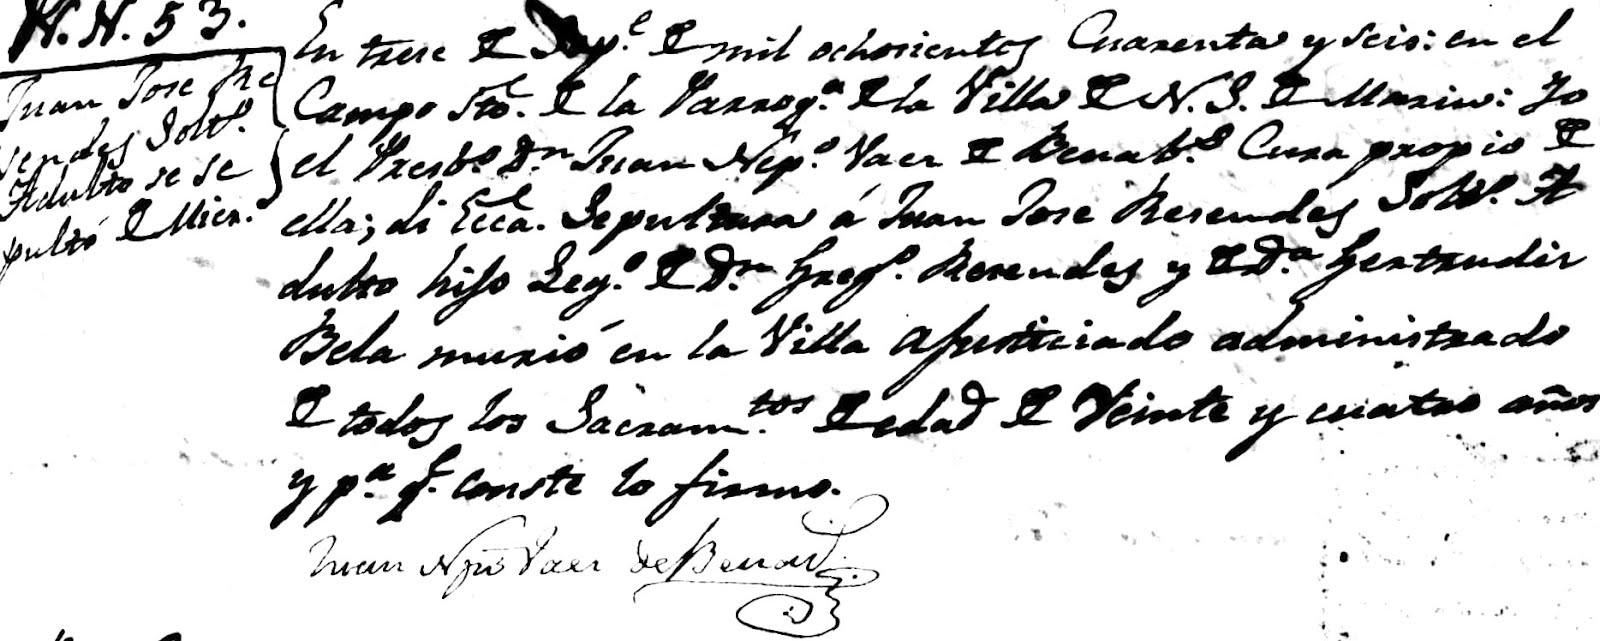 N. N. 53.
Juan Jose Re
sendes Solto.
Adulto se se
pultó de Mier.
En trese de Sepe. de mil ochosientos Cuarenta y seis: en el
Campo Sto. de la Parroqa. de la Villa de N. S. de Mier: Yo
el Presbo. Dn. Juan Nepo. de Cura propio de
ella; di Ecca. Sepultura á Juan Jose Resendes Solto. A
dulto hijo Lego. de Dn. Grego. Resendes y de Da. Gertrudis
Bela murió en la Villa ajusticiado administrado
de todos los Sacramtos. de edad de Veinte y cuatro años
y pa. qe. conste lo firmo.
Juan Npo. de